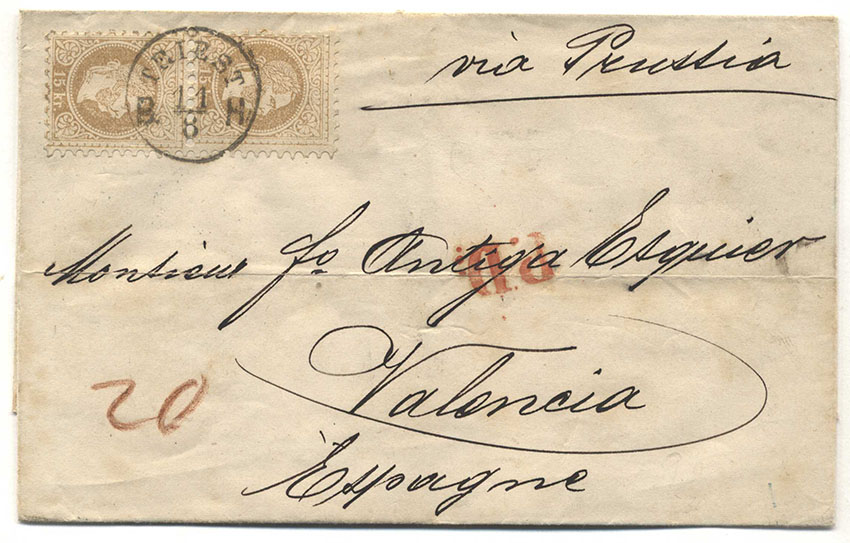 via Prussia
15 kr
TRIEST
B. 11 H.
8
P.D.
Monsieur fo. Antiga Esquier
20
Valencia
Espagne